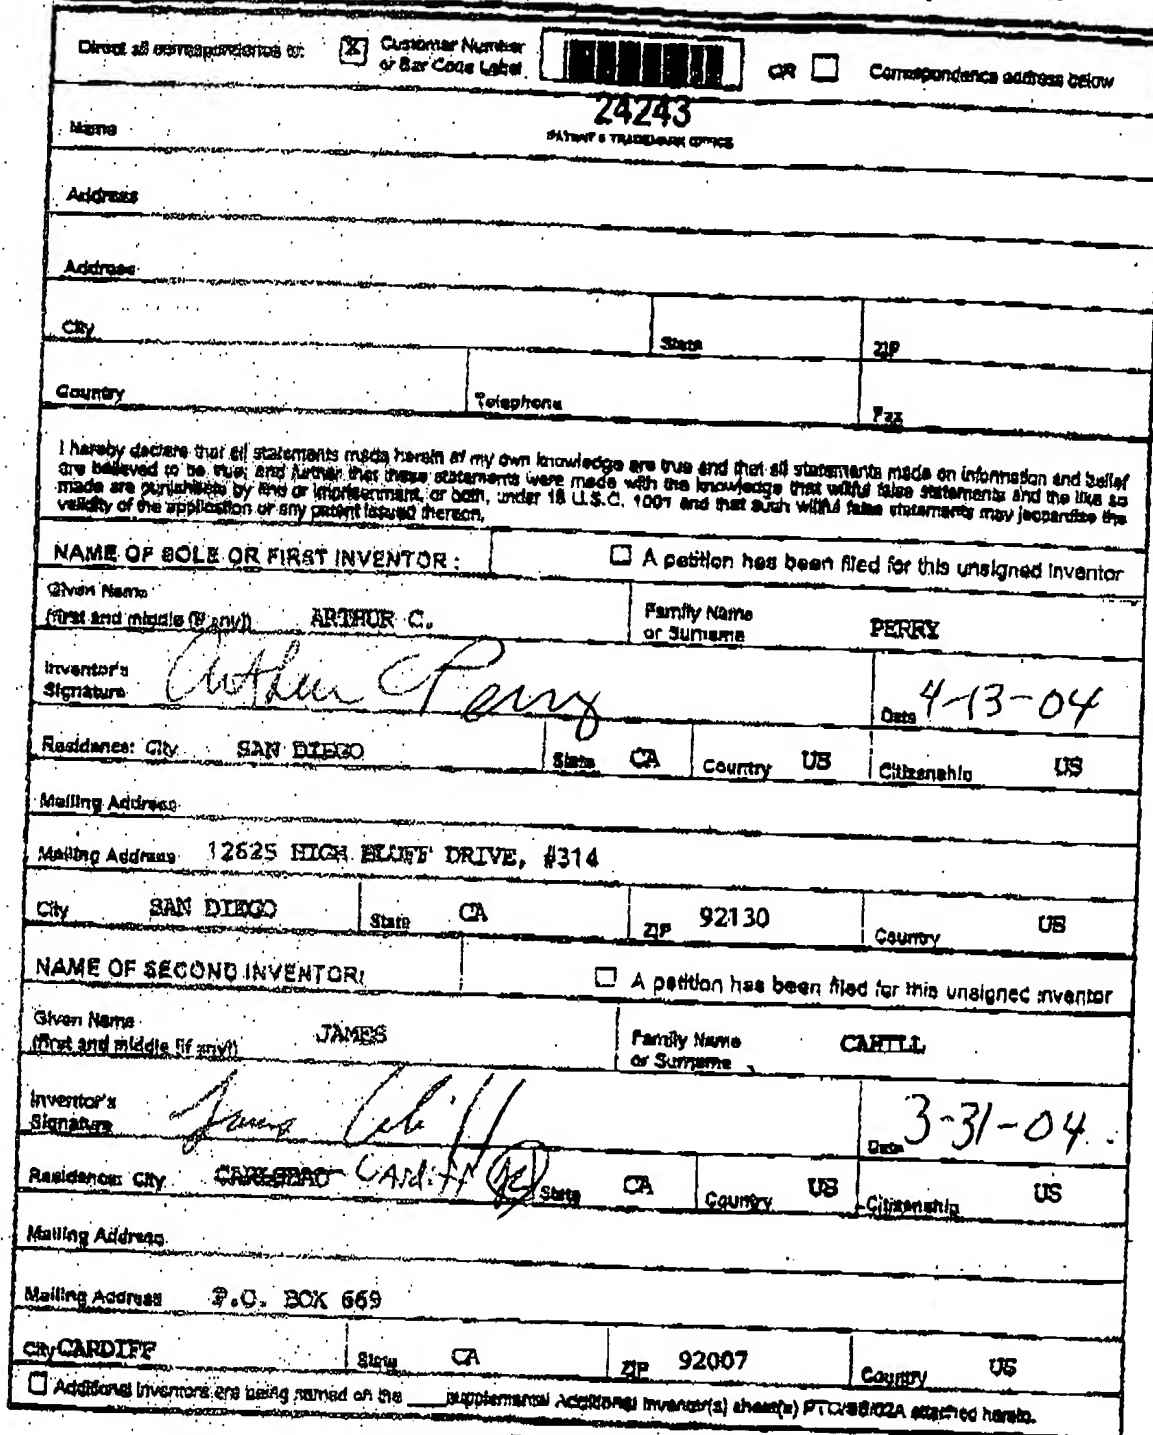 Direct all correspondence to: [X] Customer Number or Bar Code Label OR ☐ Correspondence address below
24243
PATENT & TRADEMARK OFFICE
Name
Address
Address
City State ZIP
Country Telephone Fax
I hereby declare that all statements made herein of my own knowledge are true and that all statements made on information and belief
are believed to be true; and further that these statements were made with the knowledge that willful false statements and the like so
made are punishable by fine or imprisonment, or both, under 18 U.S.C. 1001 and that such willful false statements may jeopardize the
validity of the application or any patent issued thereon.
NAME OF SOLE OR FIRST INVENTOR : ☐ A petition has been filed for this unsigned inventor
Given Name
(first and middle (if any)) ARTHUR C. Family Name or Surname PERRY
Inventor's Signature Arthur C Perry Date 4-13-04
Residence: City SAN DIEGO State CA Country US Citizenship US
Mailing Address
Mailing Address 12625 HIGH BLUFF DRIVE, #314
City SAN DIEGO State CA ZIP 92130 Country US
NAME OF SECOND INVENTOR: ☐ A petition has been filed for this unsigned inventor
Given Name
(first and middle (if any)) JAMES Family Name or Surname CAHILL
Inventor's Signature James Cahill Date 3-31-04
Residence: City CARLSBAD Cardiff JC State CA Country US Citizenship US
Mailing Address
Mailing Address P.O. BOX 669
City CARDIFF State CA ZIP 92007 Country US
☐ Additional inventors are being named on the ___ supplemental Additional Inventor(s) sheet(s) PTO/SB/02A attached hereto.